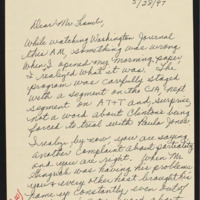 5/28/97
Dear Mr. Lamb,
While watching Washington Journal
this AM, something was wrong
when I opened my morning paper
I realized what it was. The
program was carefully staged
with a segment on the CIA next
segment on AT+T and, surprise,
not a word about Clintons being
forced to trial with Paula Jones.
I realize by now you are saying
another complaint about partiality
and you are right. When Mr.
Gingrich was having his problems
you & every other host brought his
name up constantly, even but of
word about